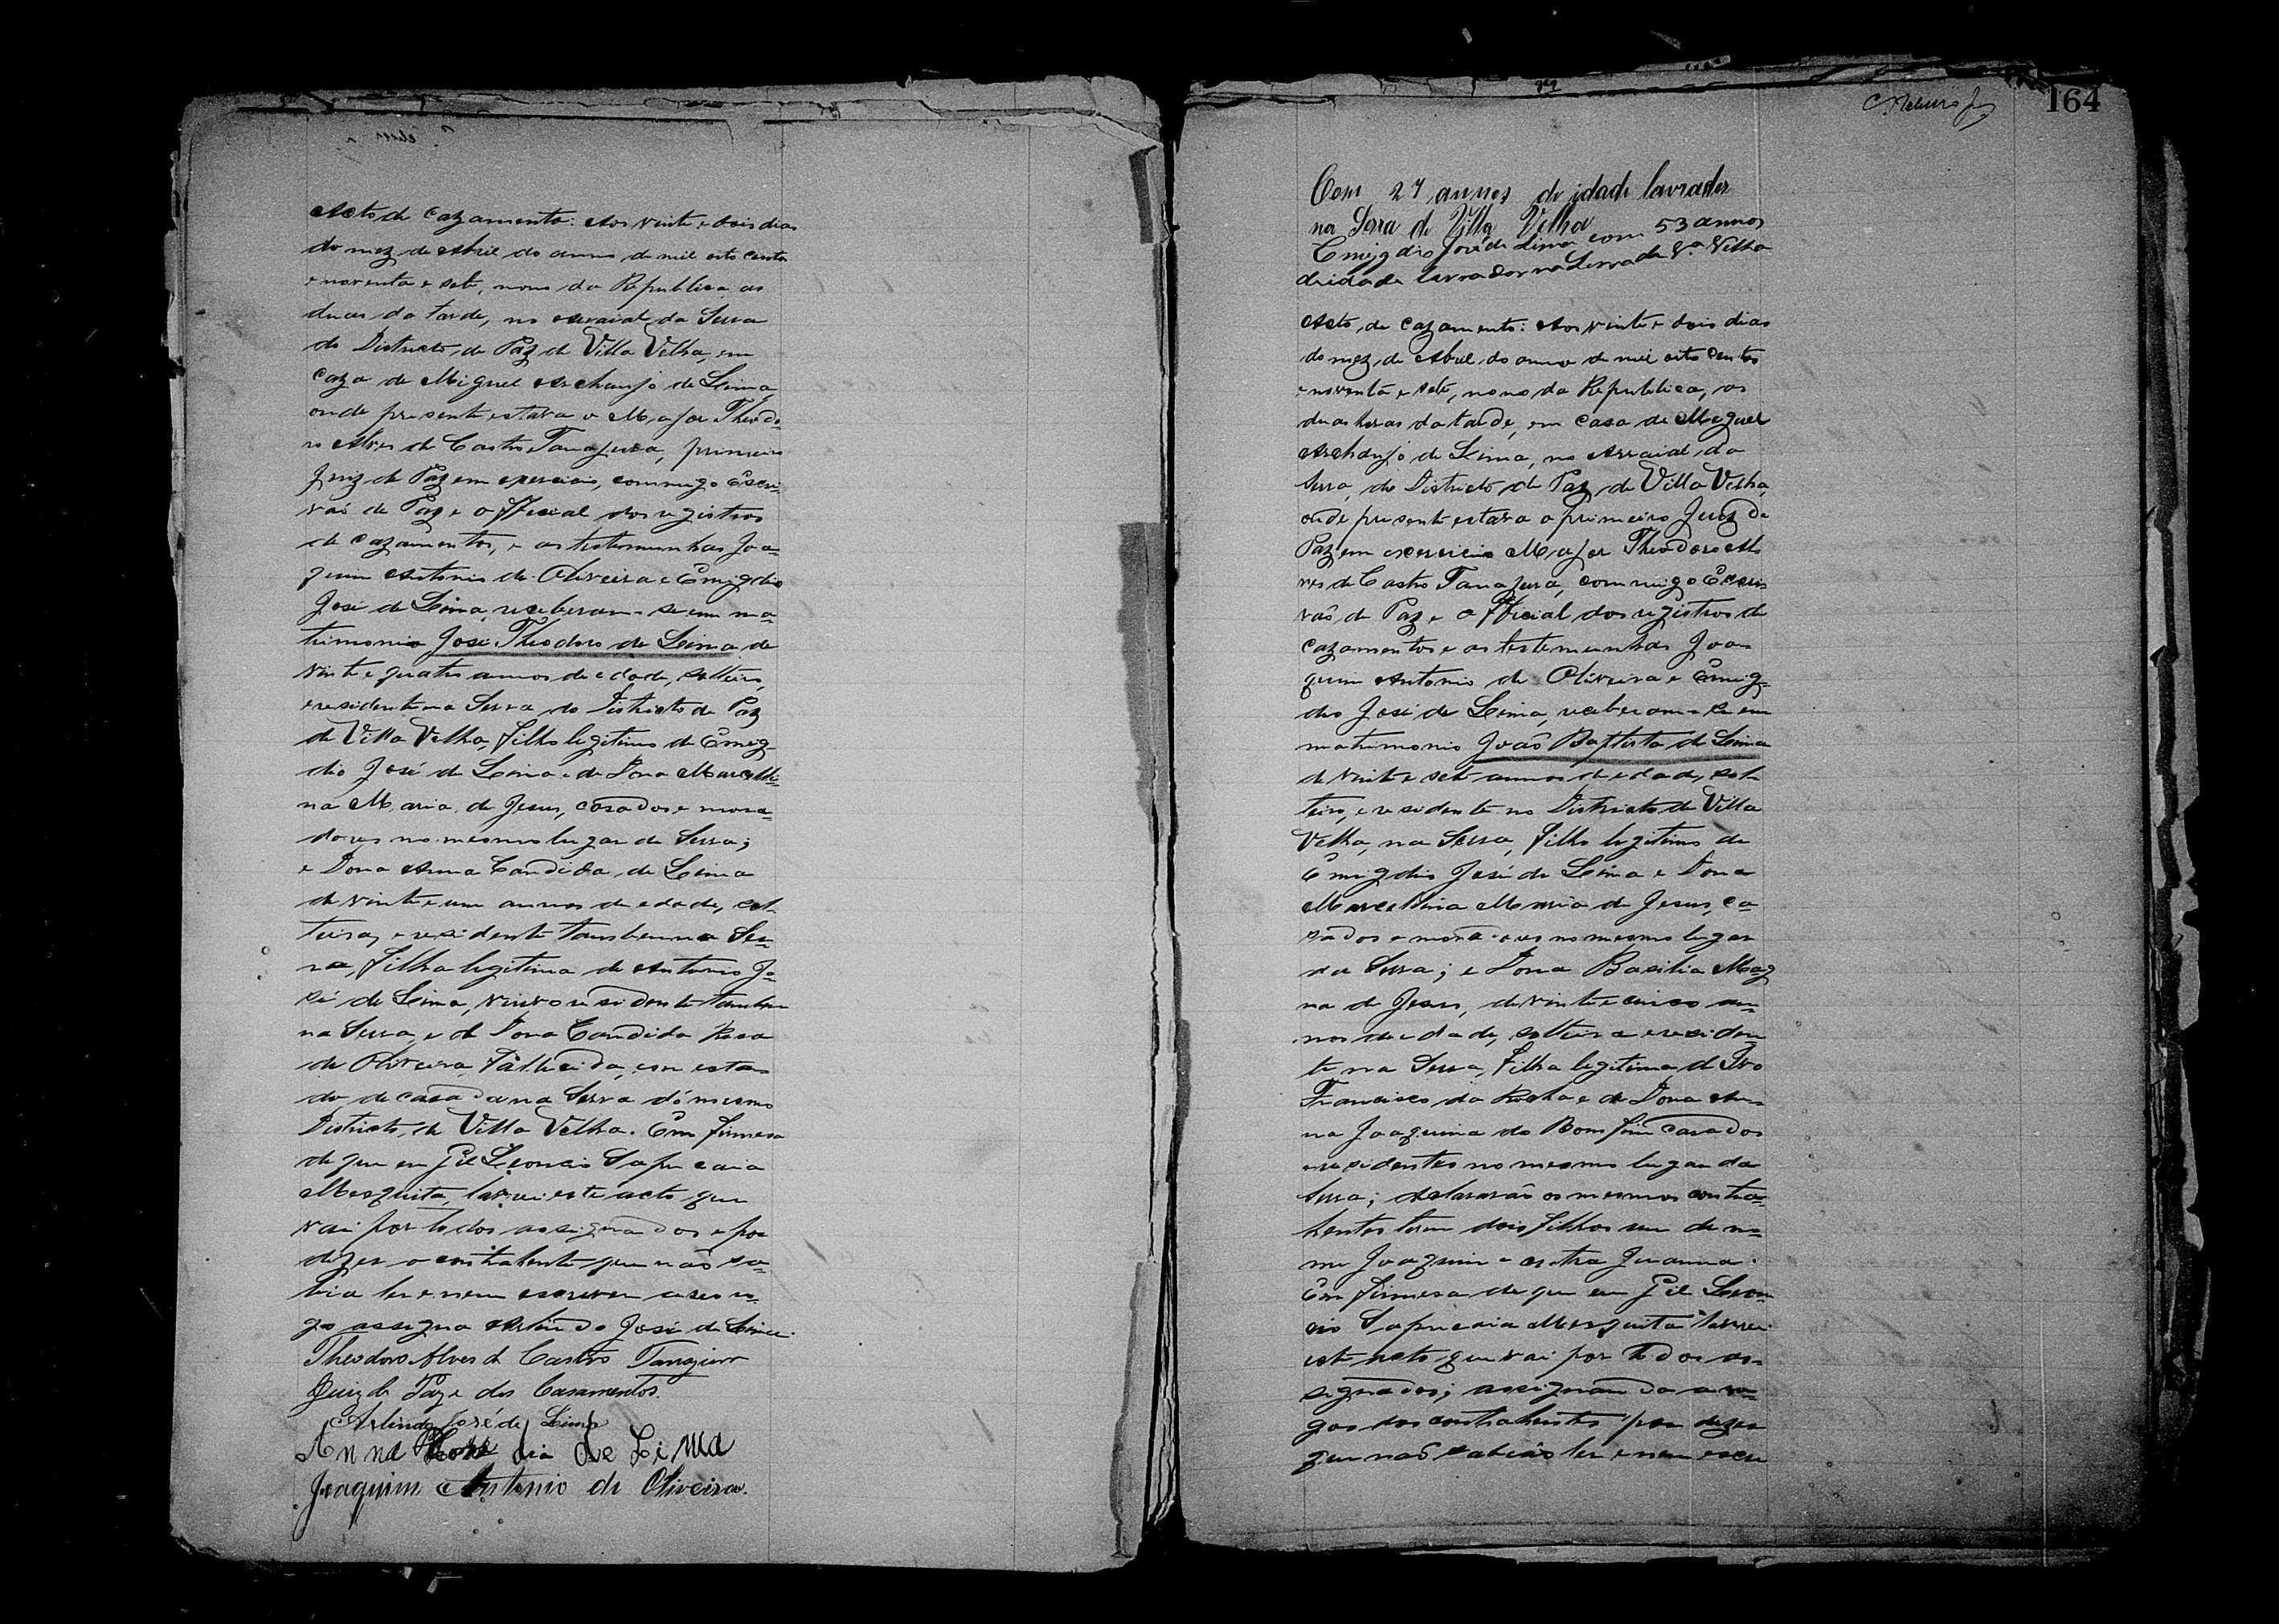 Acto de Cazamento: Aos vinte e dois dias
do mez de Abril do anno de mil oito centos
e noventa e sete, nono da Republica as
duas da tarde, no Arraial da Serra
do Districto de Paz de Villa Velha, em
caza de Miguel Archanjo de Lima,
onde presente estava o Major Theodo-
ro Alves de Castro Tanajura, primeiro
Juiz de Paz em exercicio, commigo Escri-
vaõ de Paz e Official dos registros
de cazamentos, e as testemunhas Joa-
quim Antonio de Oliveira e Emigdio
José de Lima, receberam-se em ma-
trimonio José Theodoro de Lima de
vinte e quatro annos de edade, solteiro,
e residente na Serra do Districto de Paz
de Villa Velha, filho legitimo de Emig-
dio José de Lima e de Dona Marcelli-
na Maria de Jesus, casados e mora-
dores no mesmo lugar da Serra;
e Dona Anna Candida de Lima
de vinte e um annos de edade, sol-
teira, e residente tambem na Ser-
ra, filha legitima de Antonio Jo-
sé de Lima, viuvo residente tambem
na Serra, e de Dona Candida Rosa
de Oliveira, fallecida, em esta-
do de casada na Serra do mesmo
Districto de Villa Velha. Em firmesa
de que eu Gil Leoncio Sapucaia
Mesquita, lavrei este acto que
vai por todos assignados e por
dizer o contrahente que naõ sa-
bia ler e nem escrever a seo ro-
go assigna Arlindo José de Lima.
Theodoro Alves de Castro Tanajura
Juiz de Paz e dos Casamentos.
Arlindo José de Lima
Anna dia de Lima
Joaquim Antonio de Oliveira.
164
Com 27 annos de idade lavrador
na Serra de Villa Velha
Emigdio José de Lima com 53 annos
de idade lavrador na Serra da V.ª Velha
Acto de Cazamento: Aos vinte e dois dias
do mez de Abril do anno de mil oito centos
e noventa e sete, nono da Republica, as
duas horas da tarde, em casa de Miguel
Archanjo de Lima, no Arraial da
Serra, do Districto de Paz de Villa Velha,
onde presente estava o primeiro Juiz de
Paz em exercicio Major Theodoro Al-
ves de Castro Tanajura, commigo Escri-
vaõ de Paz e Official dos registros de
cazamentos e as testemunhas Joa-
quim Antonio de Oliveira e Emig-
dio José de Lima, receberam-se em
matrimonio Joaõ Baptista de Lima
de vinte e sete annos de edade, sol-
teiro, e residente no Districto de Villa
Velha, na Serra, filho legitimo de
Emigdio José de Lima e Dona
Marcelina Maria de Jesus, ca-
sados e moradores no mesmo lugar
da Serra; e Dona Basilia Mag-
na de Jesus, de vinte e cinco an-
nos de edade, solteira e residen-
te na Serra, filha legitima de Ivo
Francisco da Rocha e de Dona An-
na Joaquina do Bomfim casados
e residentes no mesmo lugar da
Serra; declararaõ os mesmos contra-
hentes terem dois filhos um de no-
me Joaquim e outra Joanna.
Em firmesa de que eu Gil Leon-
cio Sapucaia Mesquita lavrei
este acto que vai por todos as-
signados; assignando a ro-
gos dos contrahentes por dizer
que naõ sabiaõ ler e nem escre